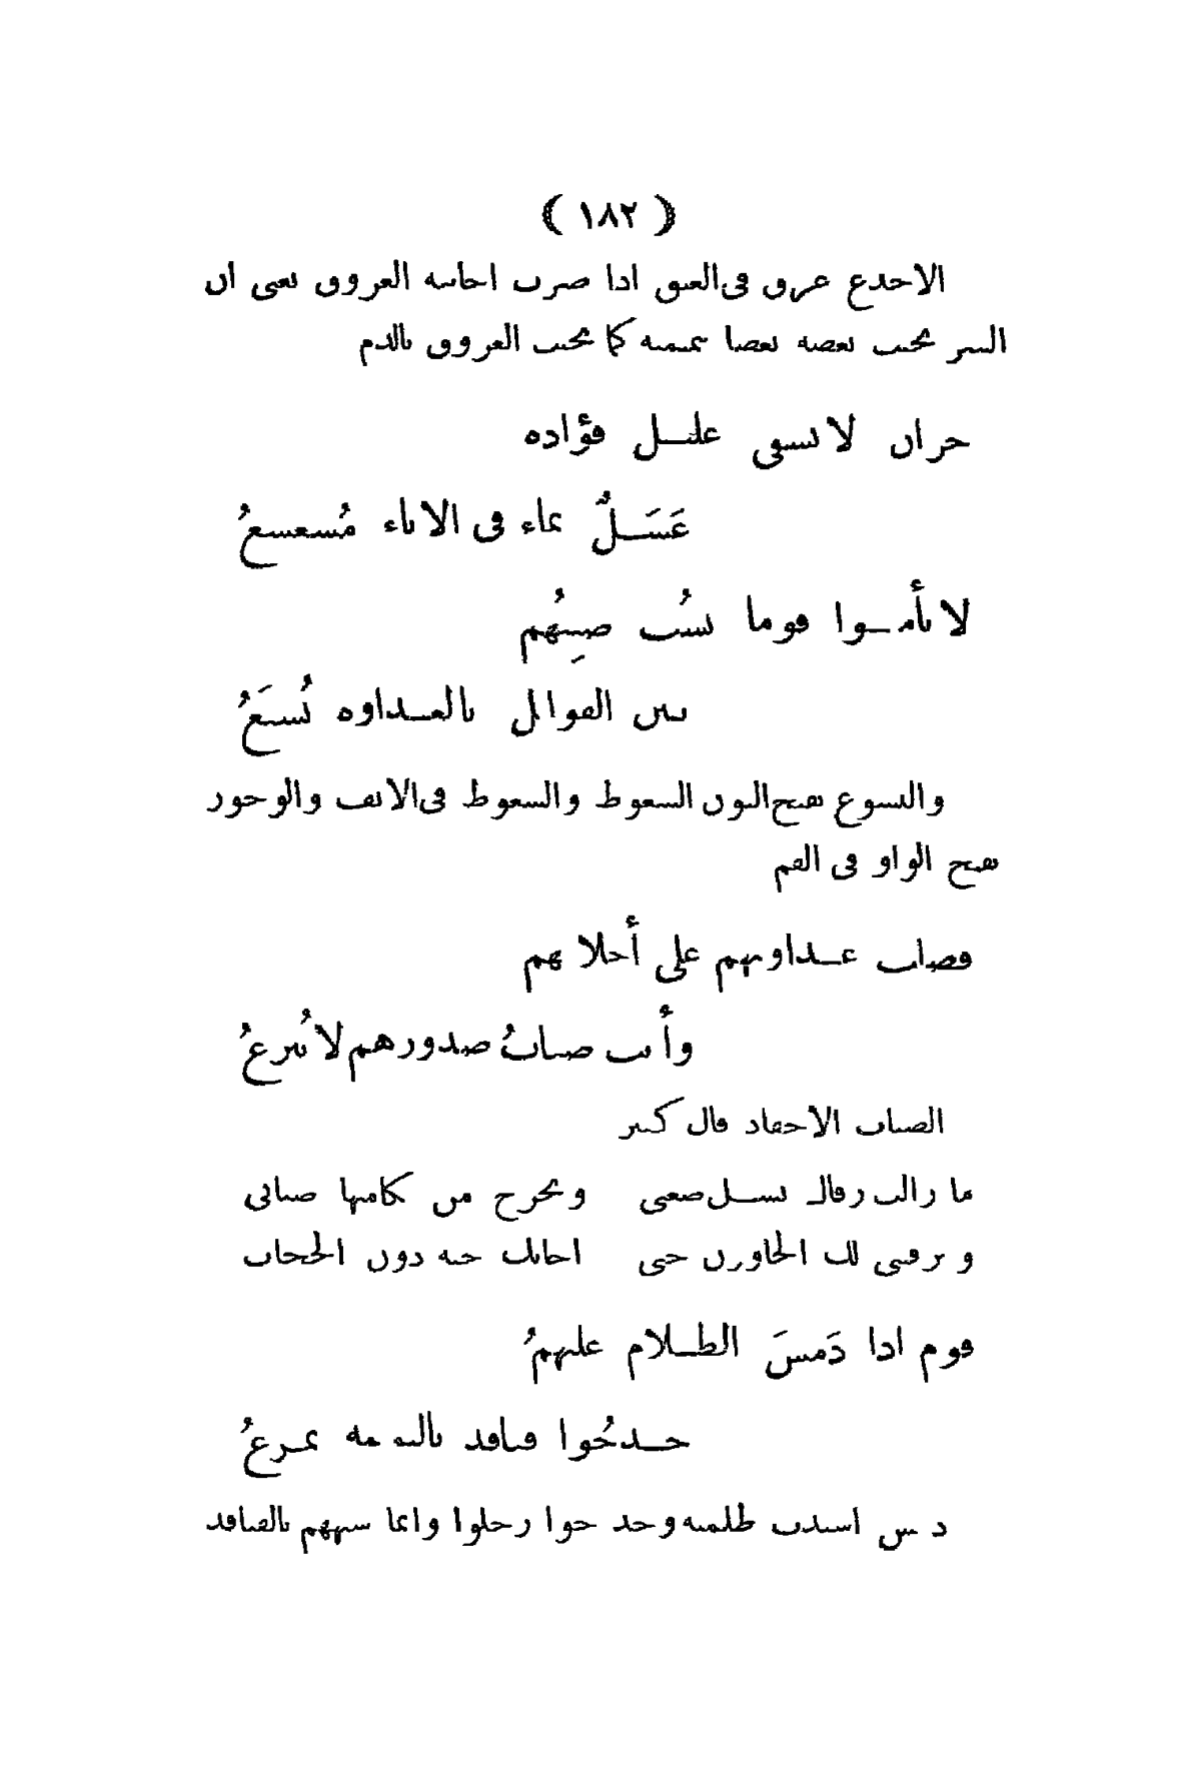 ( ١٨٢ )
الاخدع عرق فى العنق اذا ضرب اجابته العروق يعنى ان
الشر يجيب بعضه بعضا بنميمته كما تجيب العروق بالدم
حران لا يشفى غليل فؤاده
عَسَلٌ بماء فى الاناء مُشعشعُ
لا تأمنوا قوما يشُب صبِيُهم
بين القوابل بالعداوة يُنشَعُ
والنشوع بفتح النون السعوط والسعوط فى الانف والوجور
بفتح الواو فى الفم
فضلت عداوتهم على أحلامهم
وأبت ضبابُ صدورهم لا تُنزعُ
الضباب الاحقاد قال كثير
ما زالت رقاك تسل ضغنى ويخرج من مكامنها ضبابى
ويرقينى لك الحاوون حتى اجابك حية دون الحجاب
قوم اذا دَمسَ الظلام عليهمُ
حدجُوا قنافذ بالنميمة تمزعُ
دمس اشتدت ظلمته وحدجوا رحلوا وانما شبههم بالقنافذ